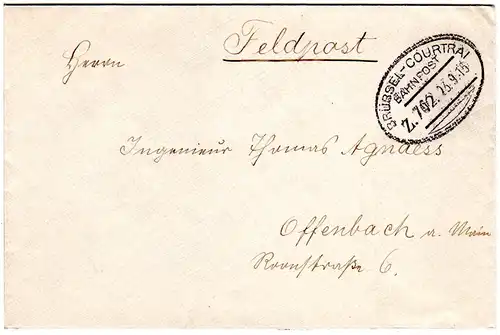 Feldpost
BRÜSSEL-COURTRAI
BAHNPOST
Z. 702. 23.9.15
Herrn
Ingenieur Thomas Agnaess
Offenbach a. Main
Roonstraße 6.